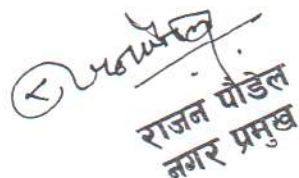 राजन पौडेल
नगर प्रमुख